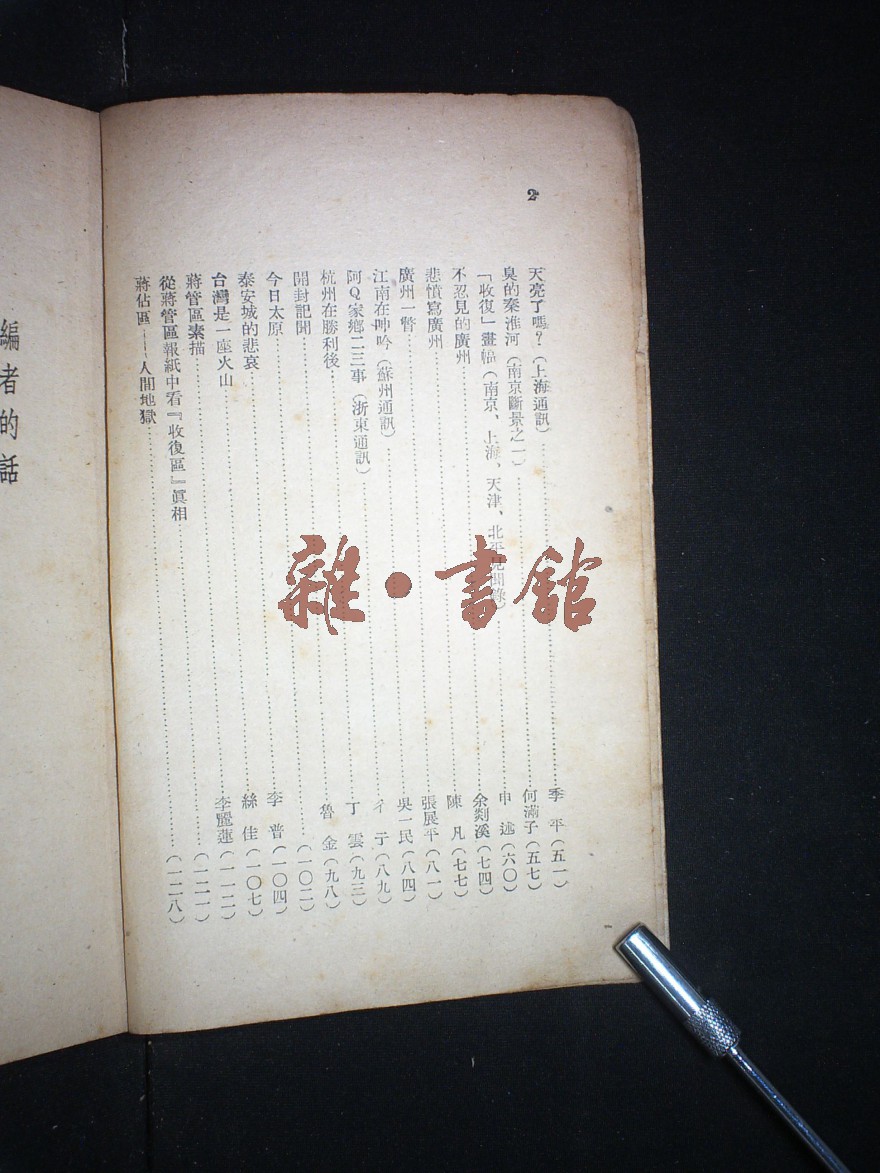 2
天亮了嗎?(上海通訊)……季 平(五一)
臭的秦淮河(南京斷景之一)……何滿子(五七)
「收復」畫幅(南京、上海、天津、北平見聞錄)……申 述(六〇)
不忍見的廣州……余剡溪(七四)
悲憤寫廣州……陳 凡(七七)
廣州一瞥……張展平(八一)
江南在呻吟(蘇州通訊)……吳一民(八四)
阿Q家鄉二三事(浙東通訊)……彳 亍(八九)
杭州在勝利後……丁 雲(九三)
開封記聞……魯 金(九八)
今日太原……(一〇二)
泰安城的悲哀……李 普(一〇四)
台灣是一座火山……絲 佳(一〇七)
蔣管區素描……李麗蓮(一一二)
從蔣管區報紙中看『收復區』眞相……(一二一)
蔣佔區——人間地獄……(一二八)
編者的話
雜•書館